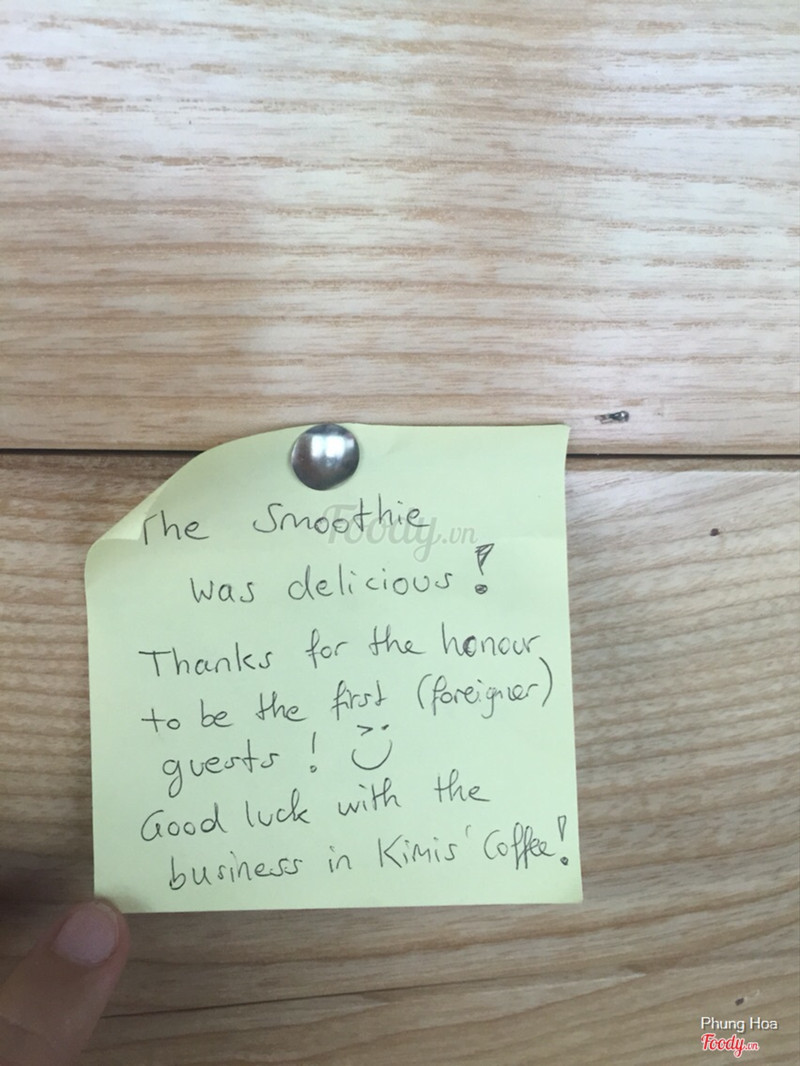 The Smoothie
Foody.vn
was delicious!
Thanks for the honour
to be the first (foreigner)
guests!
Good luck with the
business in Kimis' Coffee!
Phung Hoa
Foody.vn